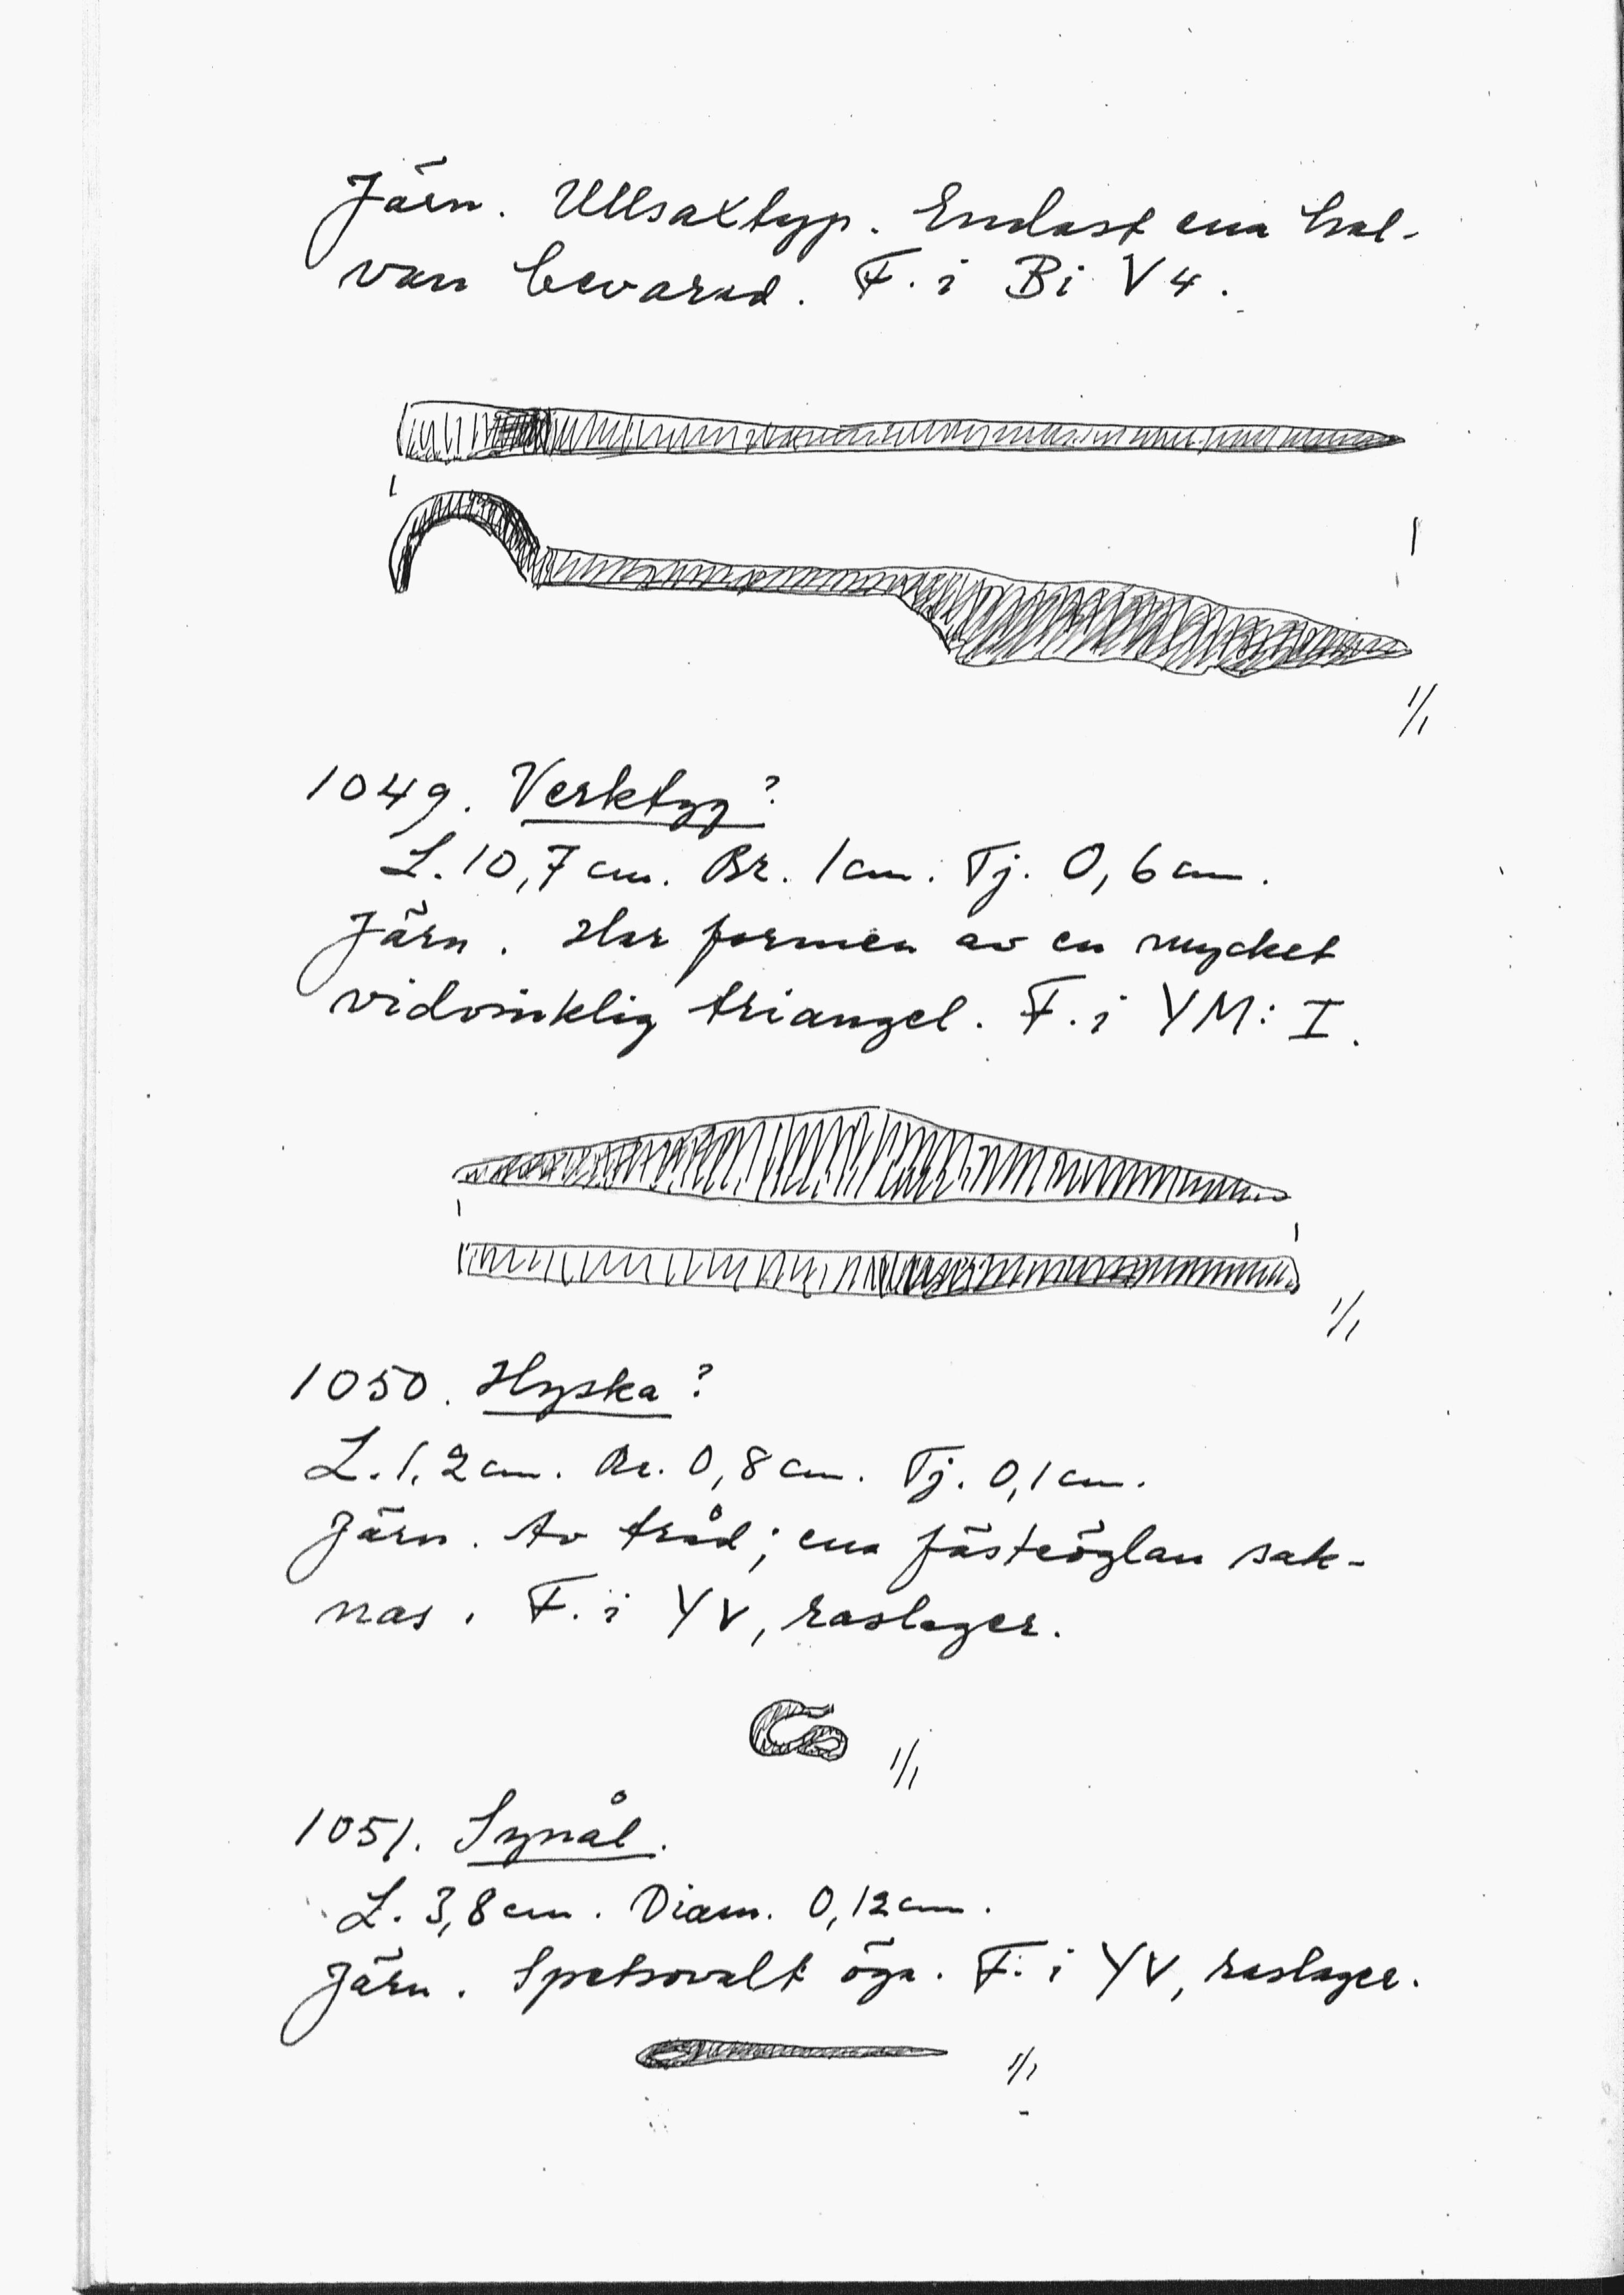 Järn. Ullsaxtyp. Endast ena hal-
van bevarad. F. i Bi V4.
1/1
1049. Verktyg?
L. 10,7 cm. Br. 1 cm. Tj. 0,6 cm.
Järn. Har formen av en mycket
vidvinklig triangel. F. i YM: I.
1/1
1050. Hyska?
L. 1,2 cm. Br. 0,8 cm. Tj. 0,1 cm.
Järn. Av tråd; ena fästeöglan sak-
nas. F. i YV, raslager.
1/1
1051. Synål.
L. 3,8 cm. Diam. 0,12 cm.
Järn. Spetsovalt öga. F. i YV, raslager.
1/1